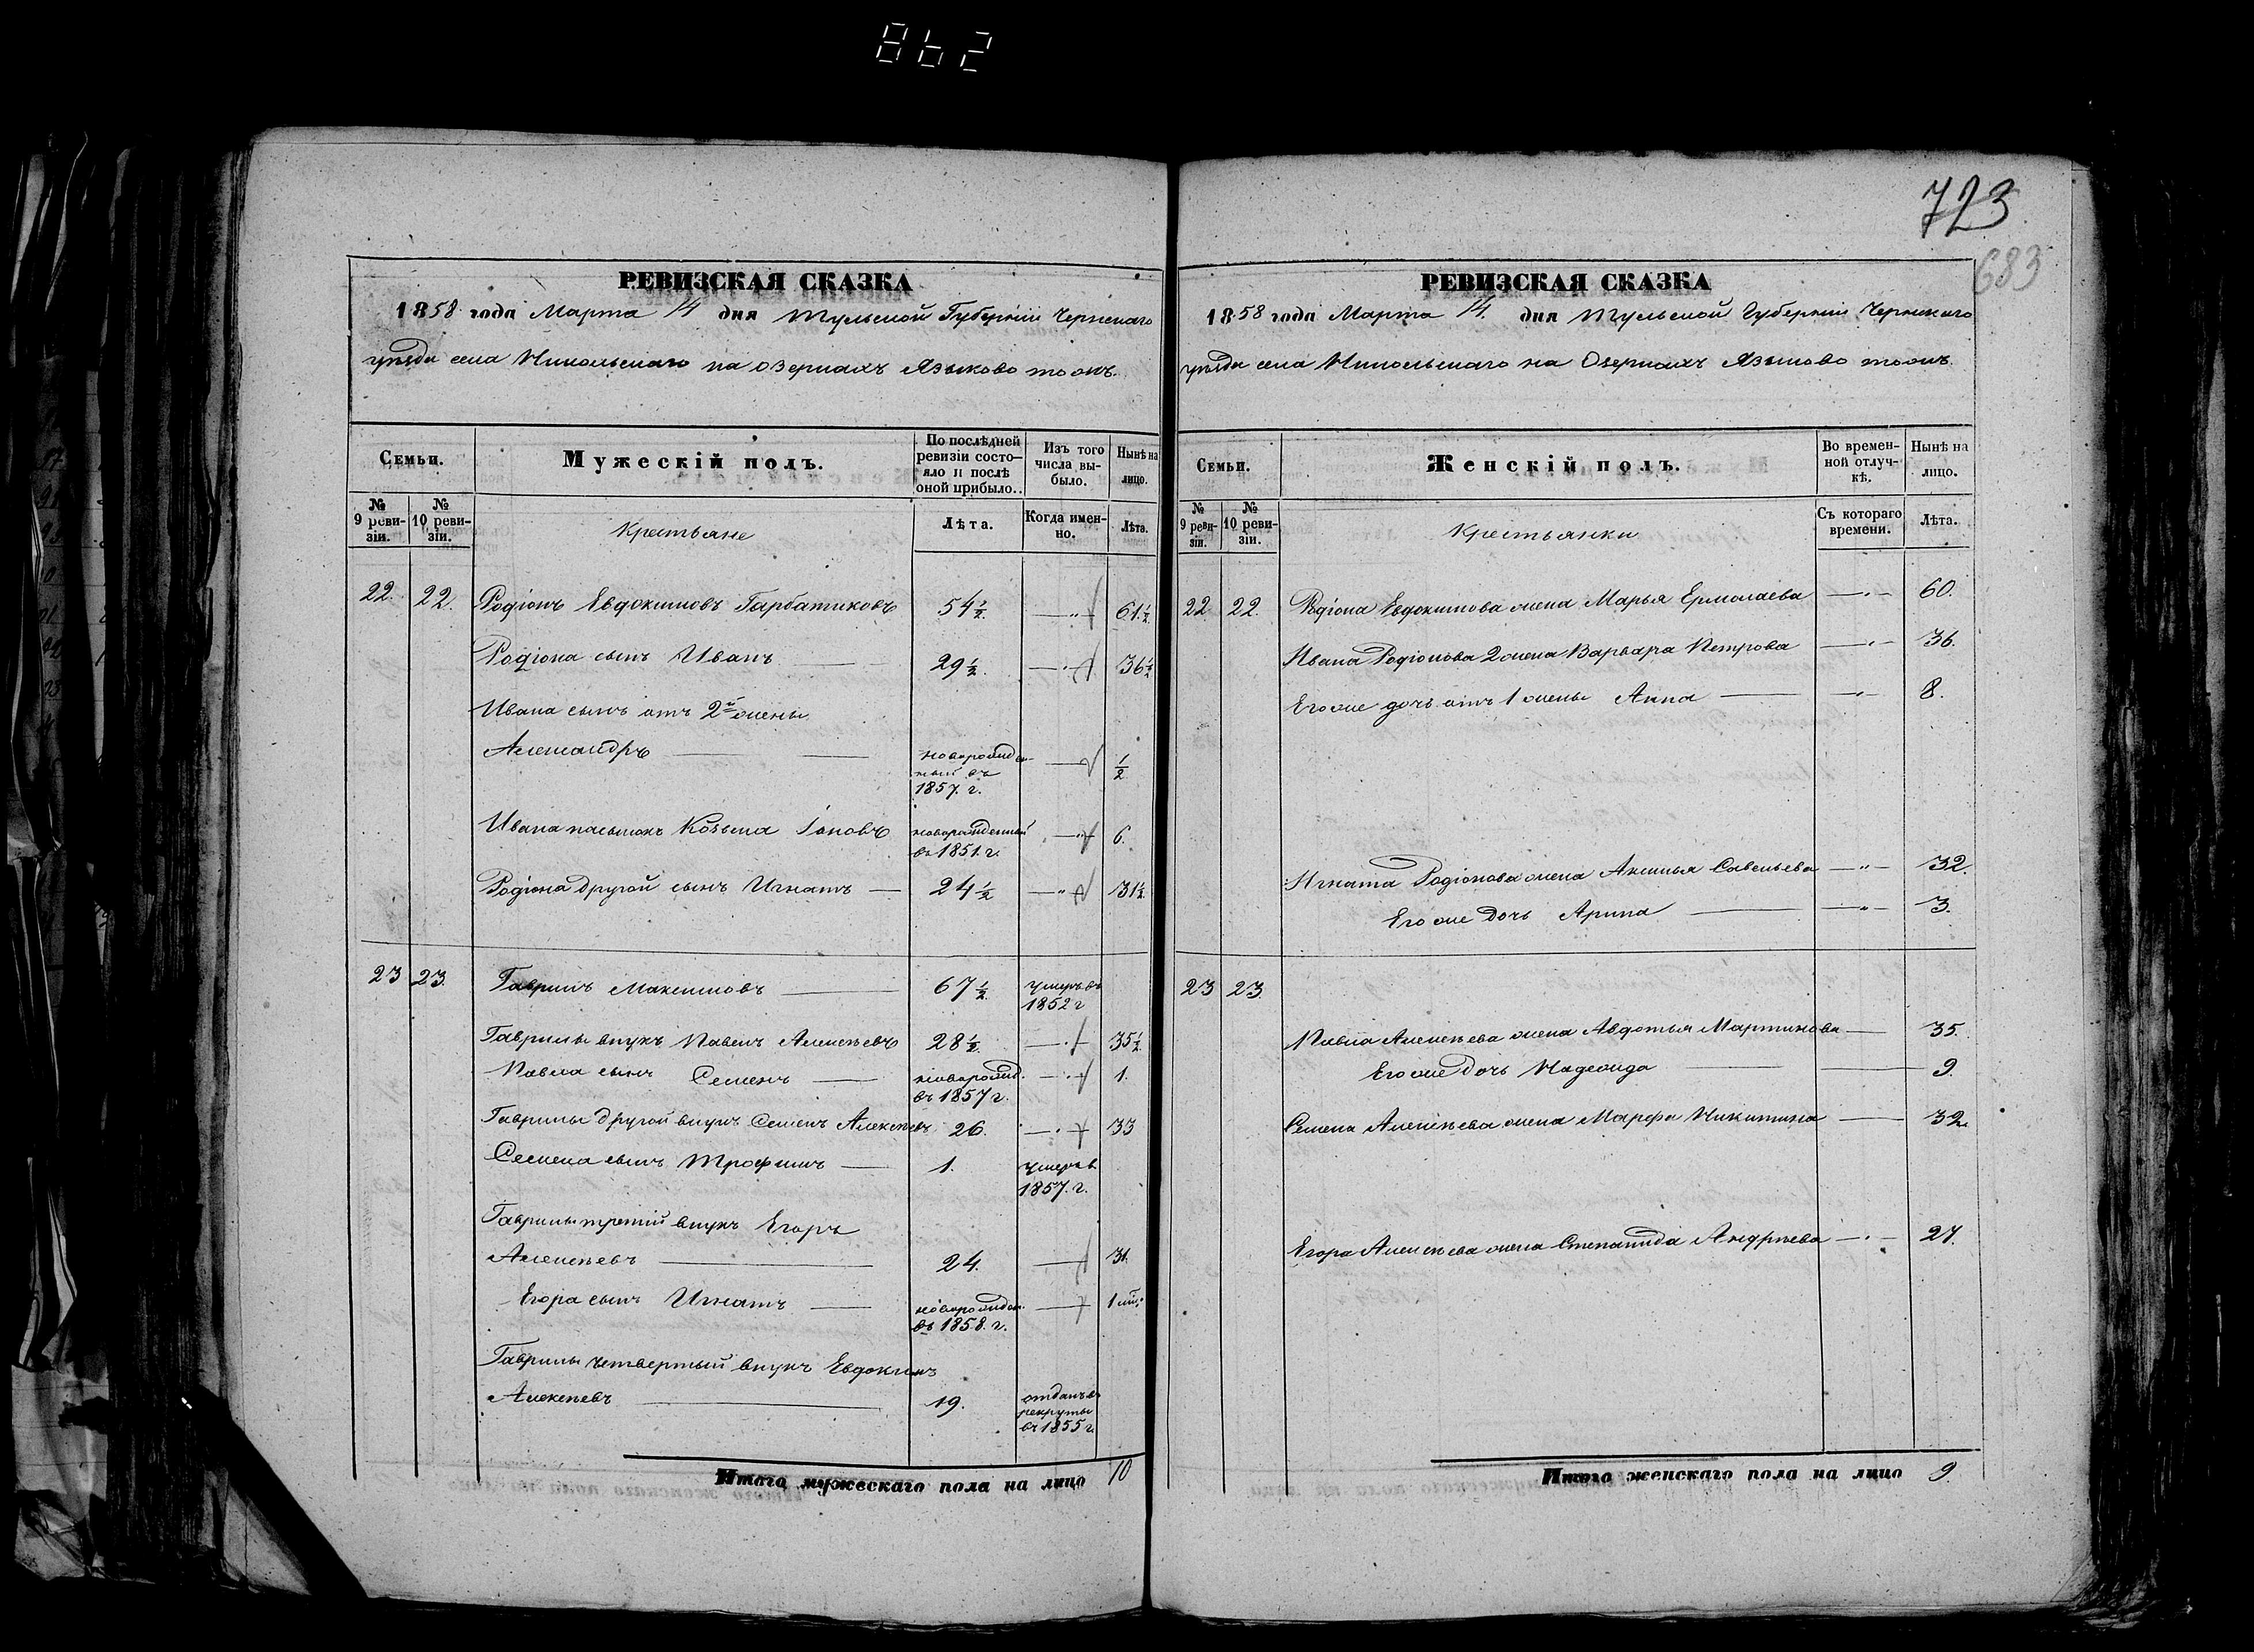 862
723
683
РЕВИЗСКАЯ СКАЗКА
1858 года Марта 14 дня Тульской Губерніи Чернскаго
уѣзда села Никольскаго на озеркахъ Языково тожъ.
Семьи.
Мужескій полъ.
По послѣдней ревизіи состояло и послѣ оной прибыло.
Изъ того числа выбыло.
Нынѣ на лицо.
№ 9 ревизіи.
№ 10 ревизіи.
Крестьяне
Лѣта.
Когда именно.
Лѣта.
22. 22. Родіонъ Евдокимовъ Гарбатиковъ 54½. —"— 61½.
Родіона сынъ Иванъ — 29½. —"— 36½
Ивана сынъ отъ 2й жены
Александръ — новорожденный въ 1857. г. — ½
Ивана пасынокъ Козьма Іоновъ новорожденный въ 1851. г. —"— 6.
Родіона другой сынъ Игнатъ — 24½ —"— 31½.
23 23. Гаврилъ Максимовъ — 67½. умеръ въ 1852 г
Гаврилы внукъ Павелъ Алексѣевъ 28½. — 35½.
Павла сынъ Семенъ — новорожд. въ 1857 г. — 1.
Гаврилы другой внукъ Семенъ Алексѣевъ 26. — 33
Семена сынъ Трофимъ — 1. умеръ в 1857. г.
Гаврилы третій внукъ Егоръ
Алексѣевъ — 24. — 31.
Егора сынъ Игнатъ — новорожден. въ 1858. г. — 1
Гаврилы четвертый внукъ Евдокимъ
Алексѣевъ — 19. отданъ въ рекруты въ 1855 г.
Итого мужескаго пола на лицо 10
РЕВИЗСКАЯ СКАЗКА
1858 года Марта 14. дня Тульской Губерніи Чернскаго
уѣзда села Никольскаго на Озеркахъ Языково тожъ.
Семьи.
Женскій полъ.
Во временной отлучкѣ.
Нынѣ на лицо.
№ 9 ревизіи.
№ 10 ревизіи.
Крестьянки
Съ котораго времени.
Лѣта.
22 22. Родіона Евдокимова жена Марья Ермолаева —"— 60.
Ивана Родіонова 2 жена Варвара Петрова —"— 36.
Его же дочь отъ 1 жены Анна — —"— 8.
Игната Родіонова жена Аксинья Савельева —"— 32.
Его же Дочь Арина — —"— 3.
23 23.
Павла Алексѣева жена Авдотья Мартинова — 35.
Его же Дочь Надежда — 9.
Семена Алексѣева жена Марфа Никитина — 32.
Егора Алексѣева жена Степанида Андрѣева —"— 27.
Итого женскаго пола на лицо 9.